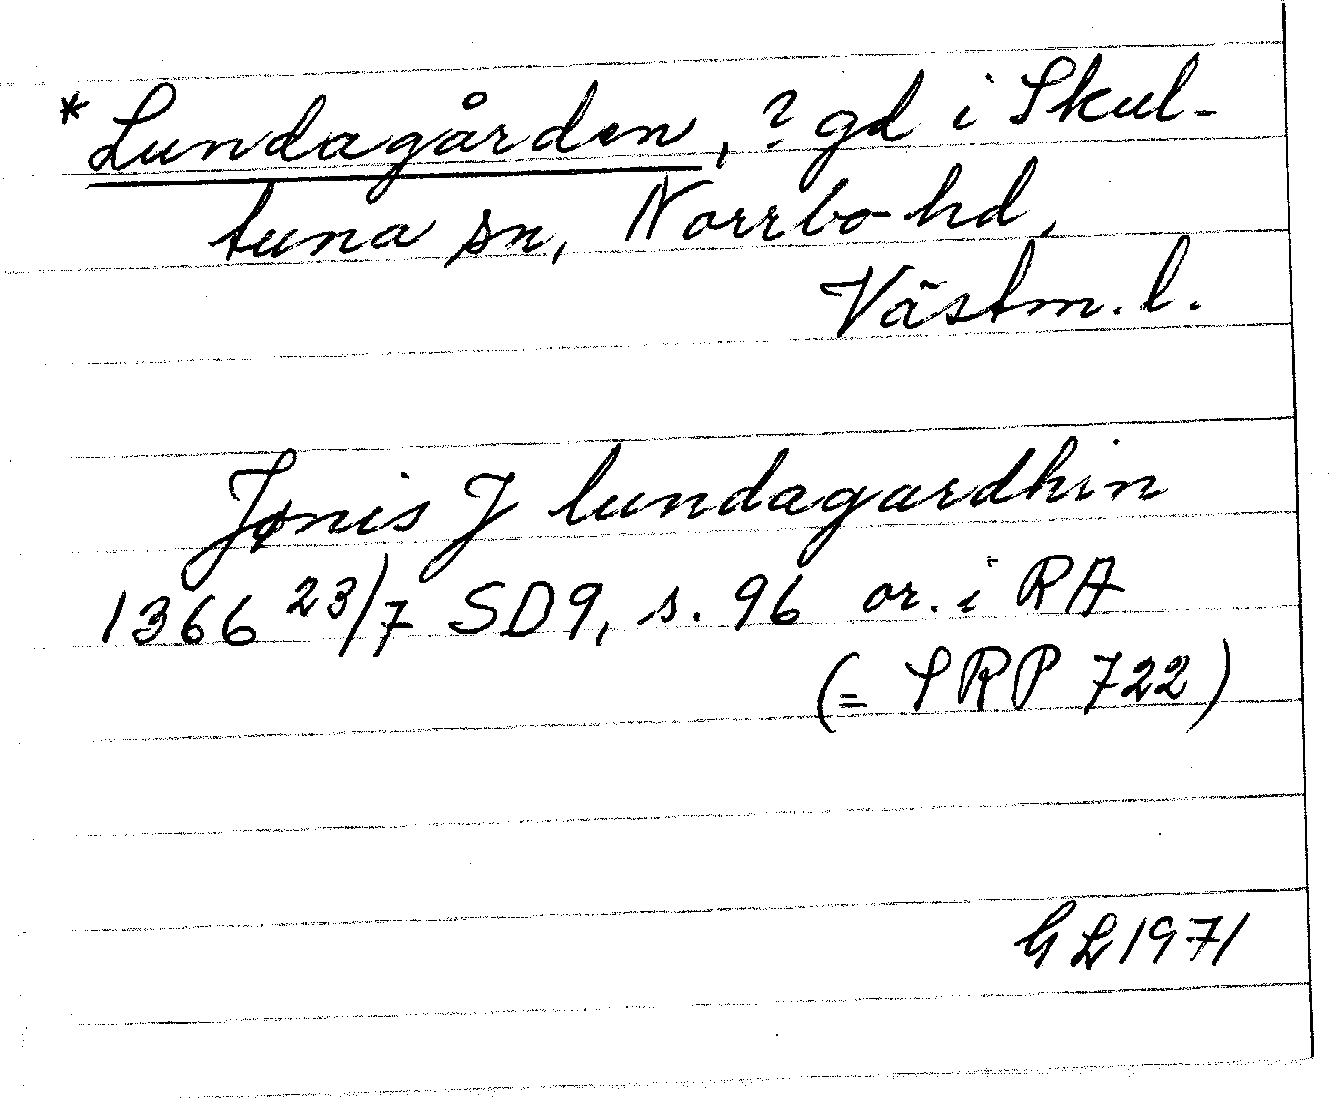 * Lundagården, ? gd i Skul-
tuna sn, Norrbo hd,
Västm. l.
Jønis J lundagardhin
1366 23/7 SD9, s. 96 or. i RA
(= SRP 722)
GL 1971